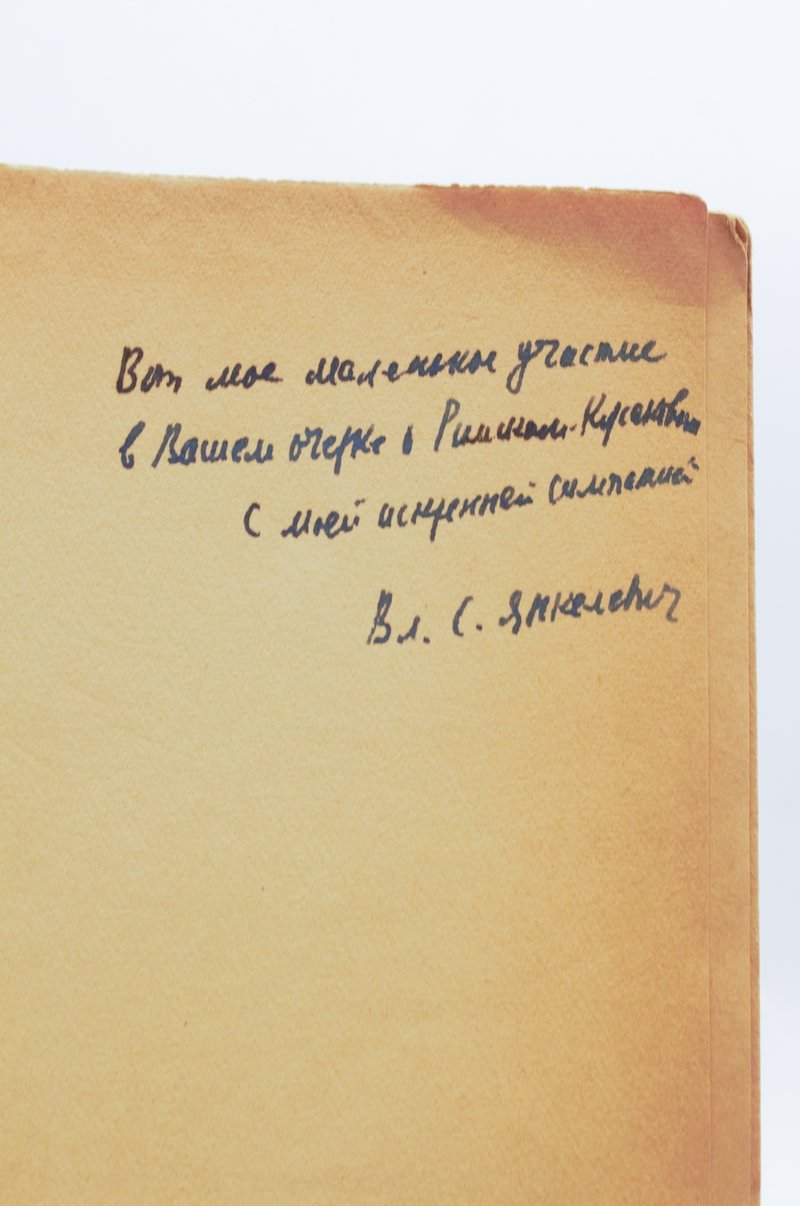 Вот мое маленькое участие
в Вашем очерке о Римском-Корсакове
С моей искренней симпатией
Вл. С. Янкелевич